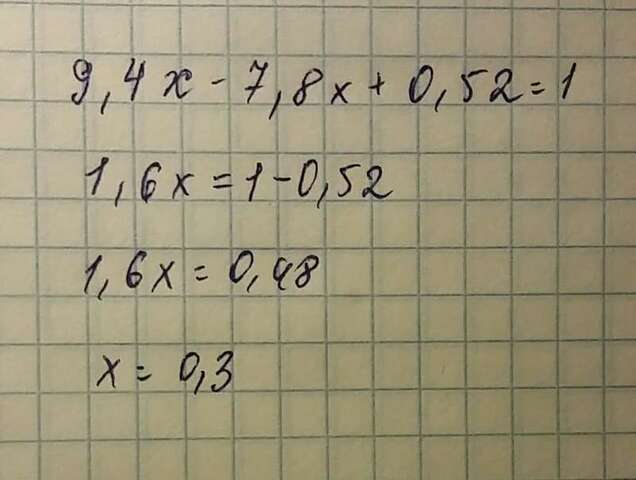 9,4x - 7,8x + 0,52 = 1
1,6x = 1 - 0,52
1,6x = 0,48
x = 0,3